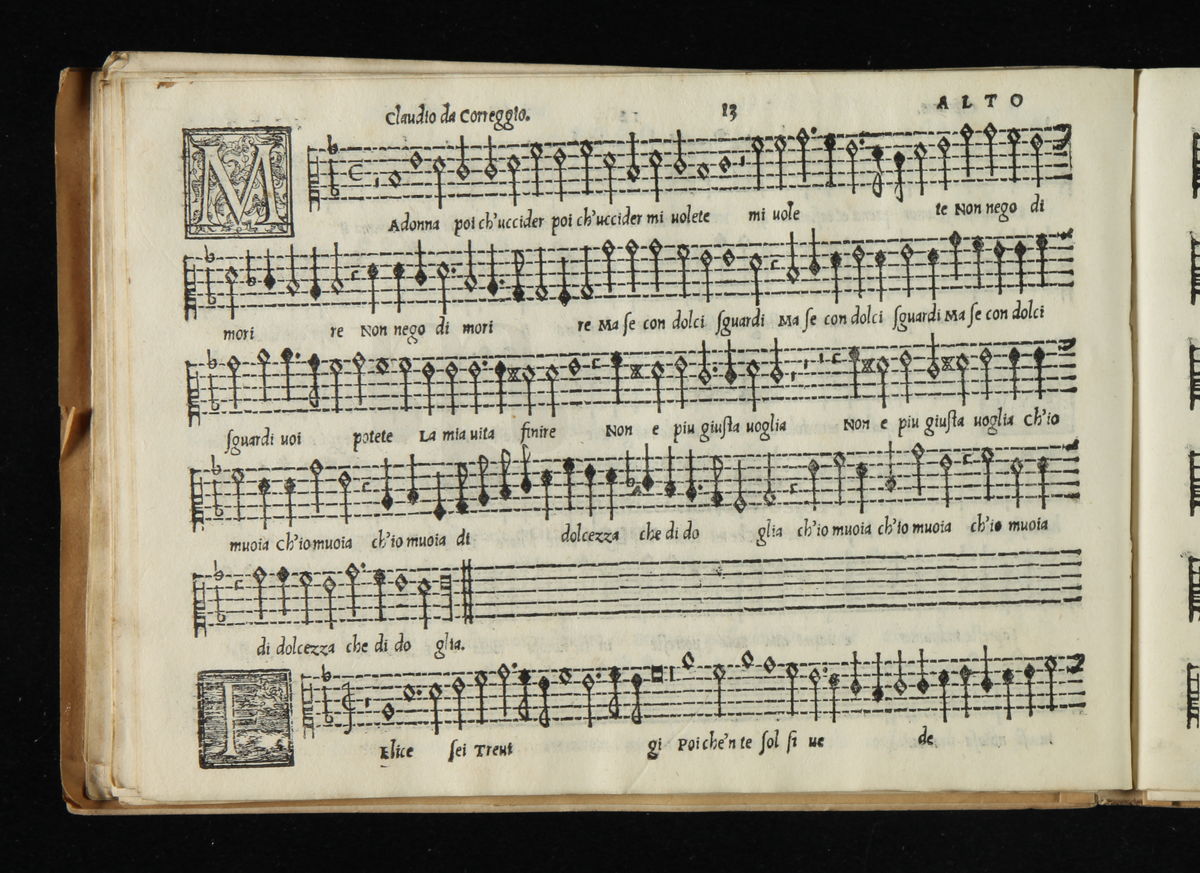 Claudio da Correggio. 13 ALTO
MAdonna poi ch'uccider poi ch'uccider mi uolete mi uole te Non nego di
mori re Non nego di mori re Ma ſe con dolci ſguardi Ma ſe con dolci ſguardi Ma ſe con dolci
ſguardi uoi potete La mia uita finire Non e piu giuſta uoglia Non e piu giuſta uoglia Ch'io
muoia Ch'io muoia ch'io muoia di dolcezza che di do glia ch'io muoia ch'io muoia ch'io muoia
di dolcezza che di do glia.
FElice ſei Treui gi Poi che'n te ſol ſi ue de